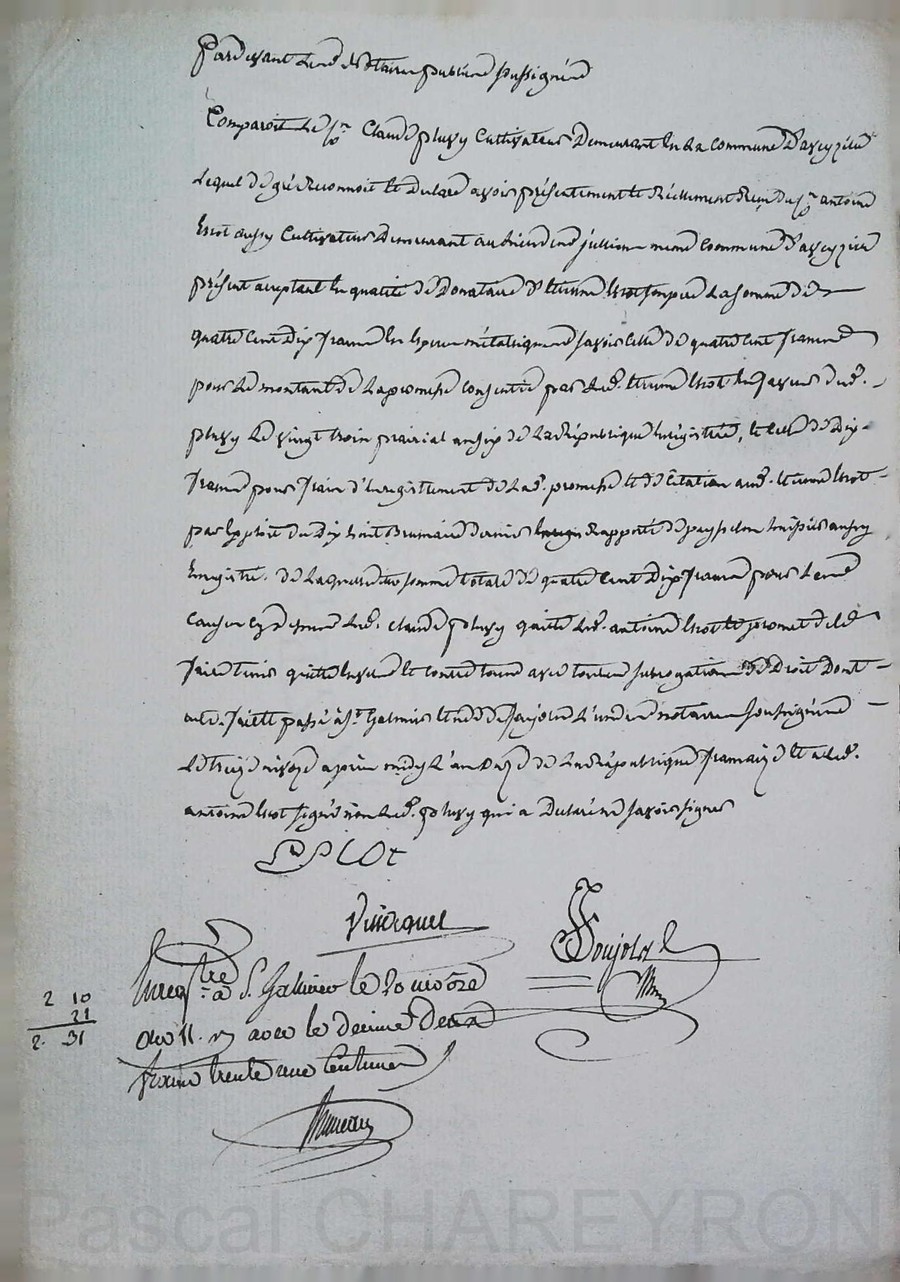 Pardevant Les Notaires publics soussignés
Comparoit le sr Claude pluvy Cultivateur Demeurant En La commune D'aveyzieu
Lequel de gré Reconnoit et Declare avoir présentement et Réellement Reçu du sr antoine
aussy Cultivateur Demeurant au lieu de jullieu meme commune d'aveyzieu
présent acceptant En qualité de Donataire d'etienne son pere La somme de
quatre Cent Dix francs En Espece métalique savoir Celle de quatre Cent francs
pour Le montant de La promesse consentie par Led. etienne En faveur dud.
pluvy Le vingt trois prairial an six de La République Enregistrée, et celle de Dix
francs pour frais d'Enregistrement de Lad. promesse et de Citation aud. etienne
par Exploit du Dix huit Brumaire dernier Rapporté de huissier aussy
Enregistré. de Laquelle somme totale de quatre Cent Dix francs pour Les
Causes cy dessus Led. claude pluvy quitte Led. antoine et promet de le
faire tenir quitte Envers et contre tous avec toutes subrogations De Droit Dont
acte. fait et passé à St. Galmier Etude de soujolr L'un des notaires soussignés
Le treize nivoze après midy L'an onze de La République française et a Led.
antoine signé non Led. pluvy qui a Declaré ne savoir signer
Enregtré à S. Galmier le 20 nivose
2 10
21
an 11. avec le decime Deux
2. 31
francs trente une Centimes
Pascal CHAREYRON